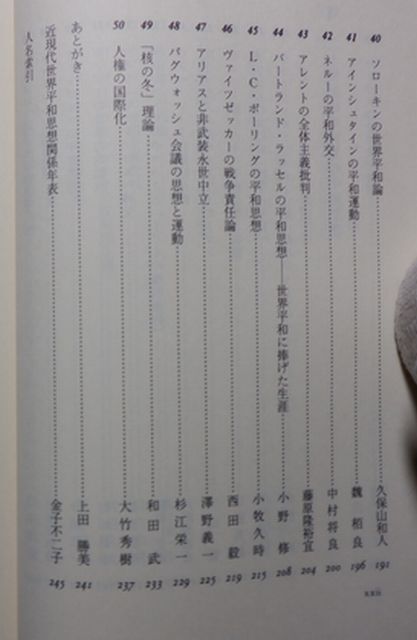 40 ソローキンの世界平和論 久保山和人 191
41 アインシュタインの平和運動 魏 栢良 196
42 ネルーの平和外交 中村将良 200
43 アレントの全体主義批判 藤原隆裕宜 204
44 バートランド・ラッセルの平和思想――世界平和に捧げた生涯 小野 修 208
45 L・C・ポーリングの平和思想 小牧久時 215
46 ヴァイツゼッカーの戦争責任論 西田 毅 219
47 アリアスと非武装永世中立 澤野義一 225
48 パグウォッシュ会議の思想と運動 杉江栄一 229
49 「核の冬」理論 和田 武 233
50 人権の国際化 大竹秀樹 237
あとがき 上田 勝美 241
近現代世界平和思想関係年表 金子不二子 245
人名索引